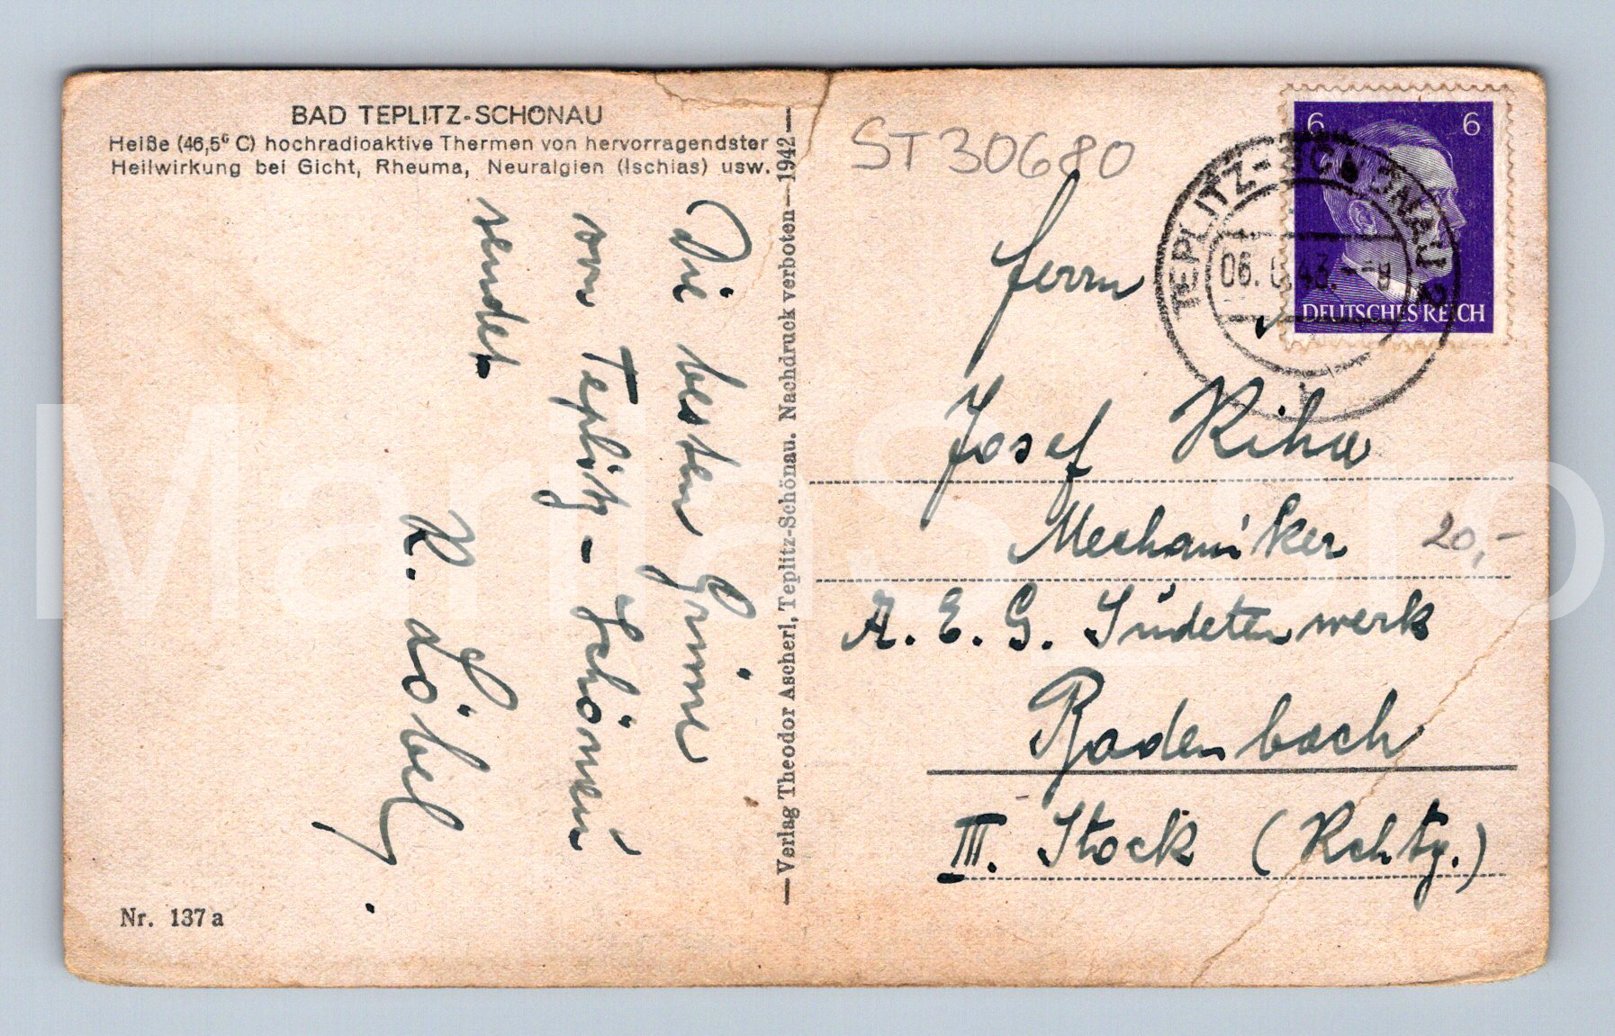 BAD TEPLITZ-SCHÖNAU
Heiße (46,5° C) hochradioaktive Thermen von hervorragendster
Heilwirkung bei Gicht, Rheuma, Neuralgien (Ischias) usw.
Die besten Grüsse
von Teplitz-Schönau
sendet
R. Löbel
Nr. 137a
—Verlag Theodor Ascherl, Teplitz-Schönau. Nachdruck verboten—1942—
ST30680
6 6
DEUTSCHES REICH
TEPLITZ-SCHÖNAU 2
06. 43.
Herrn
Josef Riha
Mechaniker
20,-
A. E. G. Sudetenwerk
Bodenbach
III. Stock (Rchtg.)